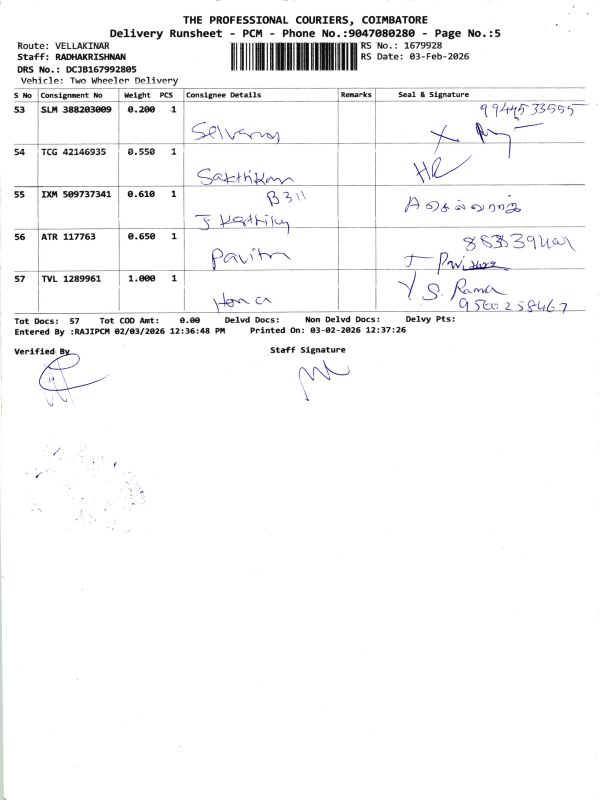 THE PROFESSIONAL COURIERS, COIMBATORE
Delivery Runsheet - PCM - Phone No.:9047080280 - Page No.:5
Route: VELLAKINAR
RS No.: 1679928
Staff: RADHAKRISHNAN
RS Date: 03-Feb-2026
DRS No.: DCJB167992805
Vehicle: Two Wheeler Delivery
S No Consignment No Weight PCS Consignee Details Remarks Seal & Signature
53 SLM 388203009 0.200 1 9944533555
54 TCG 42146935 0.550 1
HR
55 IXM 509737341 0.610 1 B311
56 ATR 117763 0.650 1
57 TVL 1289961 1.000 1 S. Rama
9500258467
Tot Docs: 57 Tot COD Amt: 0.00 Delvd Docs: Non Delvd Docs: Delvy Pts:
Entered By :RAJIPCM 02/03/2026 12:36:48 PM Printed On: 03-02-2026 12:37:26
Verified By
Staff Signature